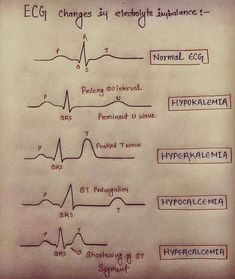 ECG changes in electrolyte imbalance :-
P R T
Q S
Normal ECG
Prolong QU interval
P U
Prominent U wave
QRS
HYPOKALEMIA
T
Peaked T wave
P
QRS
HYPERKALEMIA
QT Prolongation
P T
QRS
HYPOCALCEMIA
P T
QRS
Shortening of ST
Segment
HYPERCALCEMIA